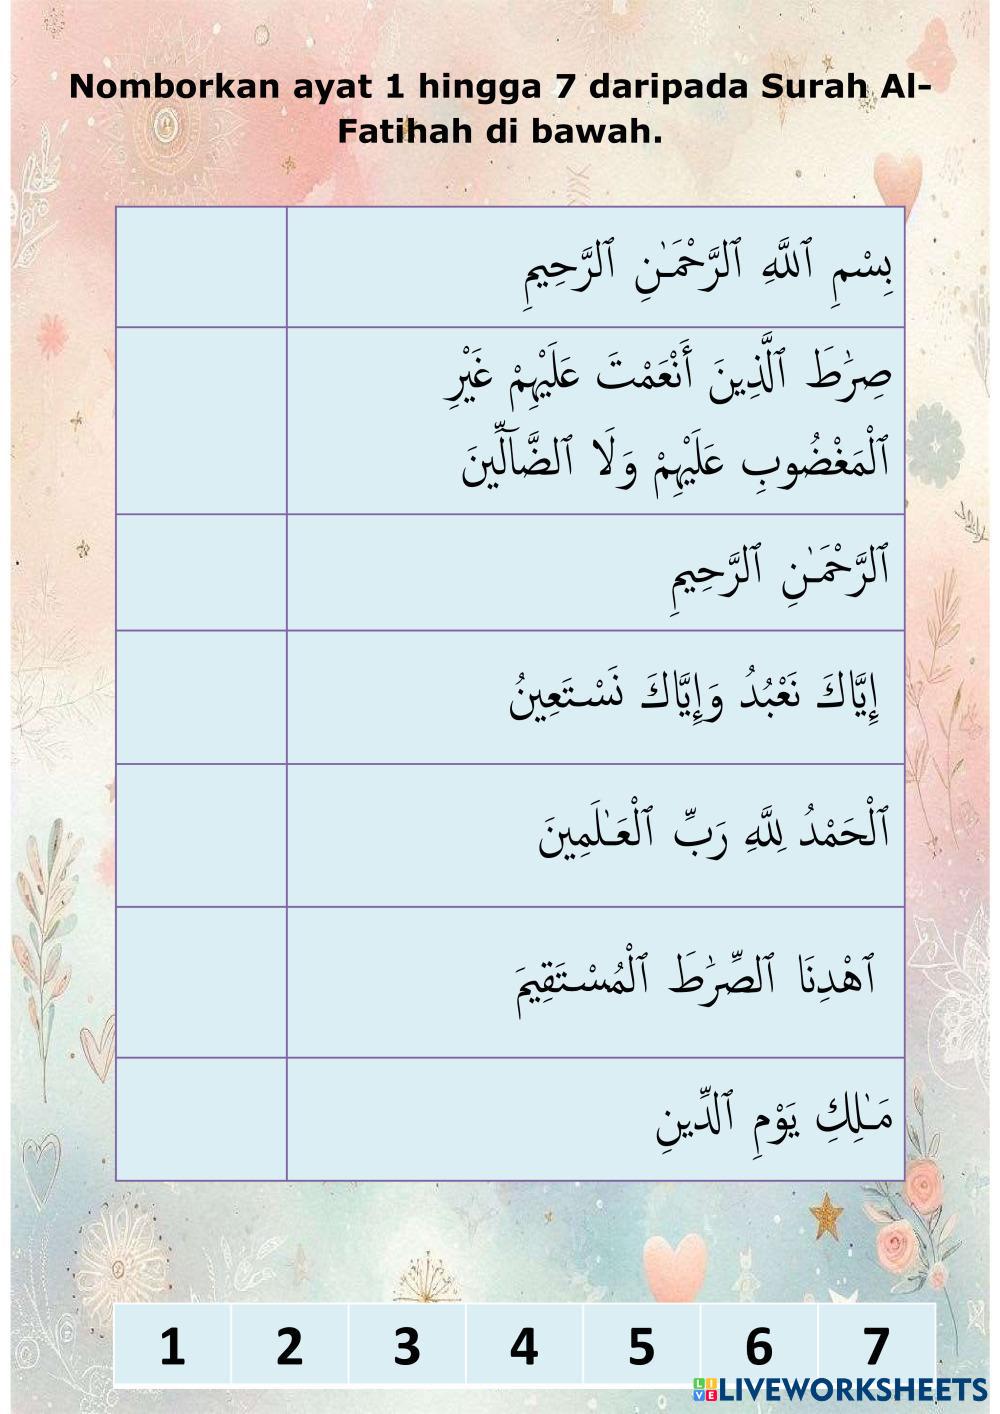 Nomborkan ayat 1 hingga 7 daripada Surah Al-
Fatihah di bawah.
بِسْمِ ٱللَّهِ ٱلرَّحْمَـٰنِ ٱلرَّحِيمِ
صِرَٰطَ ٱلَّذِينَ أَنْعَمْتَ عَلَيْهِمْ غَيْرِ
ٱلْمَغْضُوبِ عَلَيْهِمْ وَلَا ٱلضَّآلِّينَ
ٱلرَّحْمَـٰنِ ٱلرَّحِيمِ
إِيَّاكَ نَعْبُدُ وَإِيَّاكَ نَسْتَعِينُ
ٱلْحَمْدُ لِلَّهِ رَبِّ ٱلْعَـٰلَمِينَ
ٱهْدِنَا ٱلصِّرَٰطَ ٱلْمُسْتَقِيمَ
مَـٰلِكِ يَوْمِ ٱلدِّينِ
1 2 3 4 5 6 7
LIVE LIVEWORKSHEETS